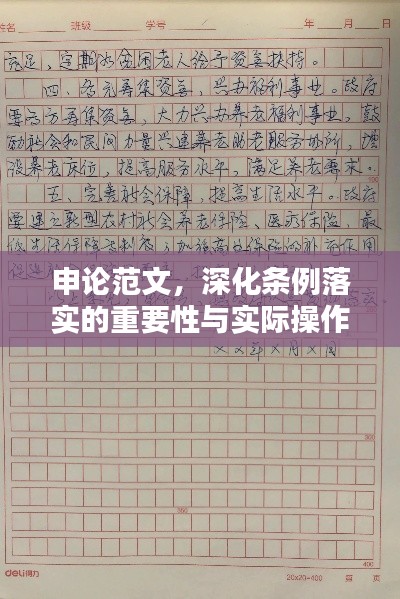 姓名 班级 学号 年 月 日
充足，定期为贫困老人给予资金扶持。
四、多元募集资金，兴办福利事业。政府
要多方募集资金，大力兴办养老福利事业，鼓
励社会和民间力量兴建养老助老服务场所，增
设养老床位，提高服务水平，满足养老要求。
五、完善社会保障，提高生活水平。政府
要建立新型农村社会养老保险、医疗保险、最
低生活保障
申论范文，深化条例落
实的重要性与实际操作
X X年X月X日
100
300
360
400
deli得力
20x20=400 第 页